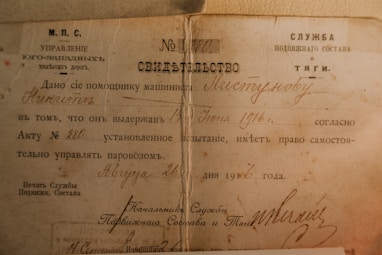 М. П. С.
УПРАВЛЕНІЕ
ЮГО-ЗАПАДНЫХЪ
желѣзныхъ дорогъ.
СЛУЖБА
ПОДВИЖНОГО СОСТАВА
И
ТЯГИ.
№
СВИДѢТЕЛЬСТВО
Дано сіе помощнику машиниста Листунову
Никитѣ
въ томъ, что онъ выдержалъ Іюня 1916 г. согласно
Акту № 280 установленное испытаніе, имѣетъ право самостоя-
тельно управлять паровозомъ.
Августа дня года.
Печать Службы
Подвижн. Состава.
Начальникъ Службы
Подвижного Состава и Тяги